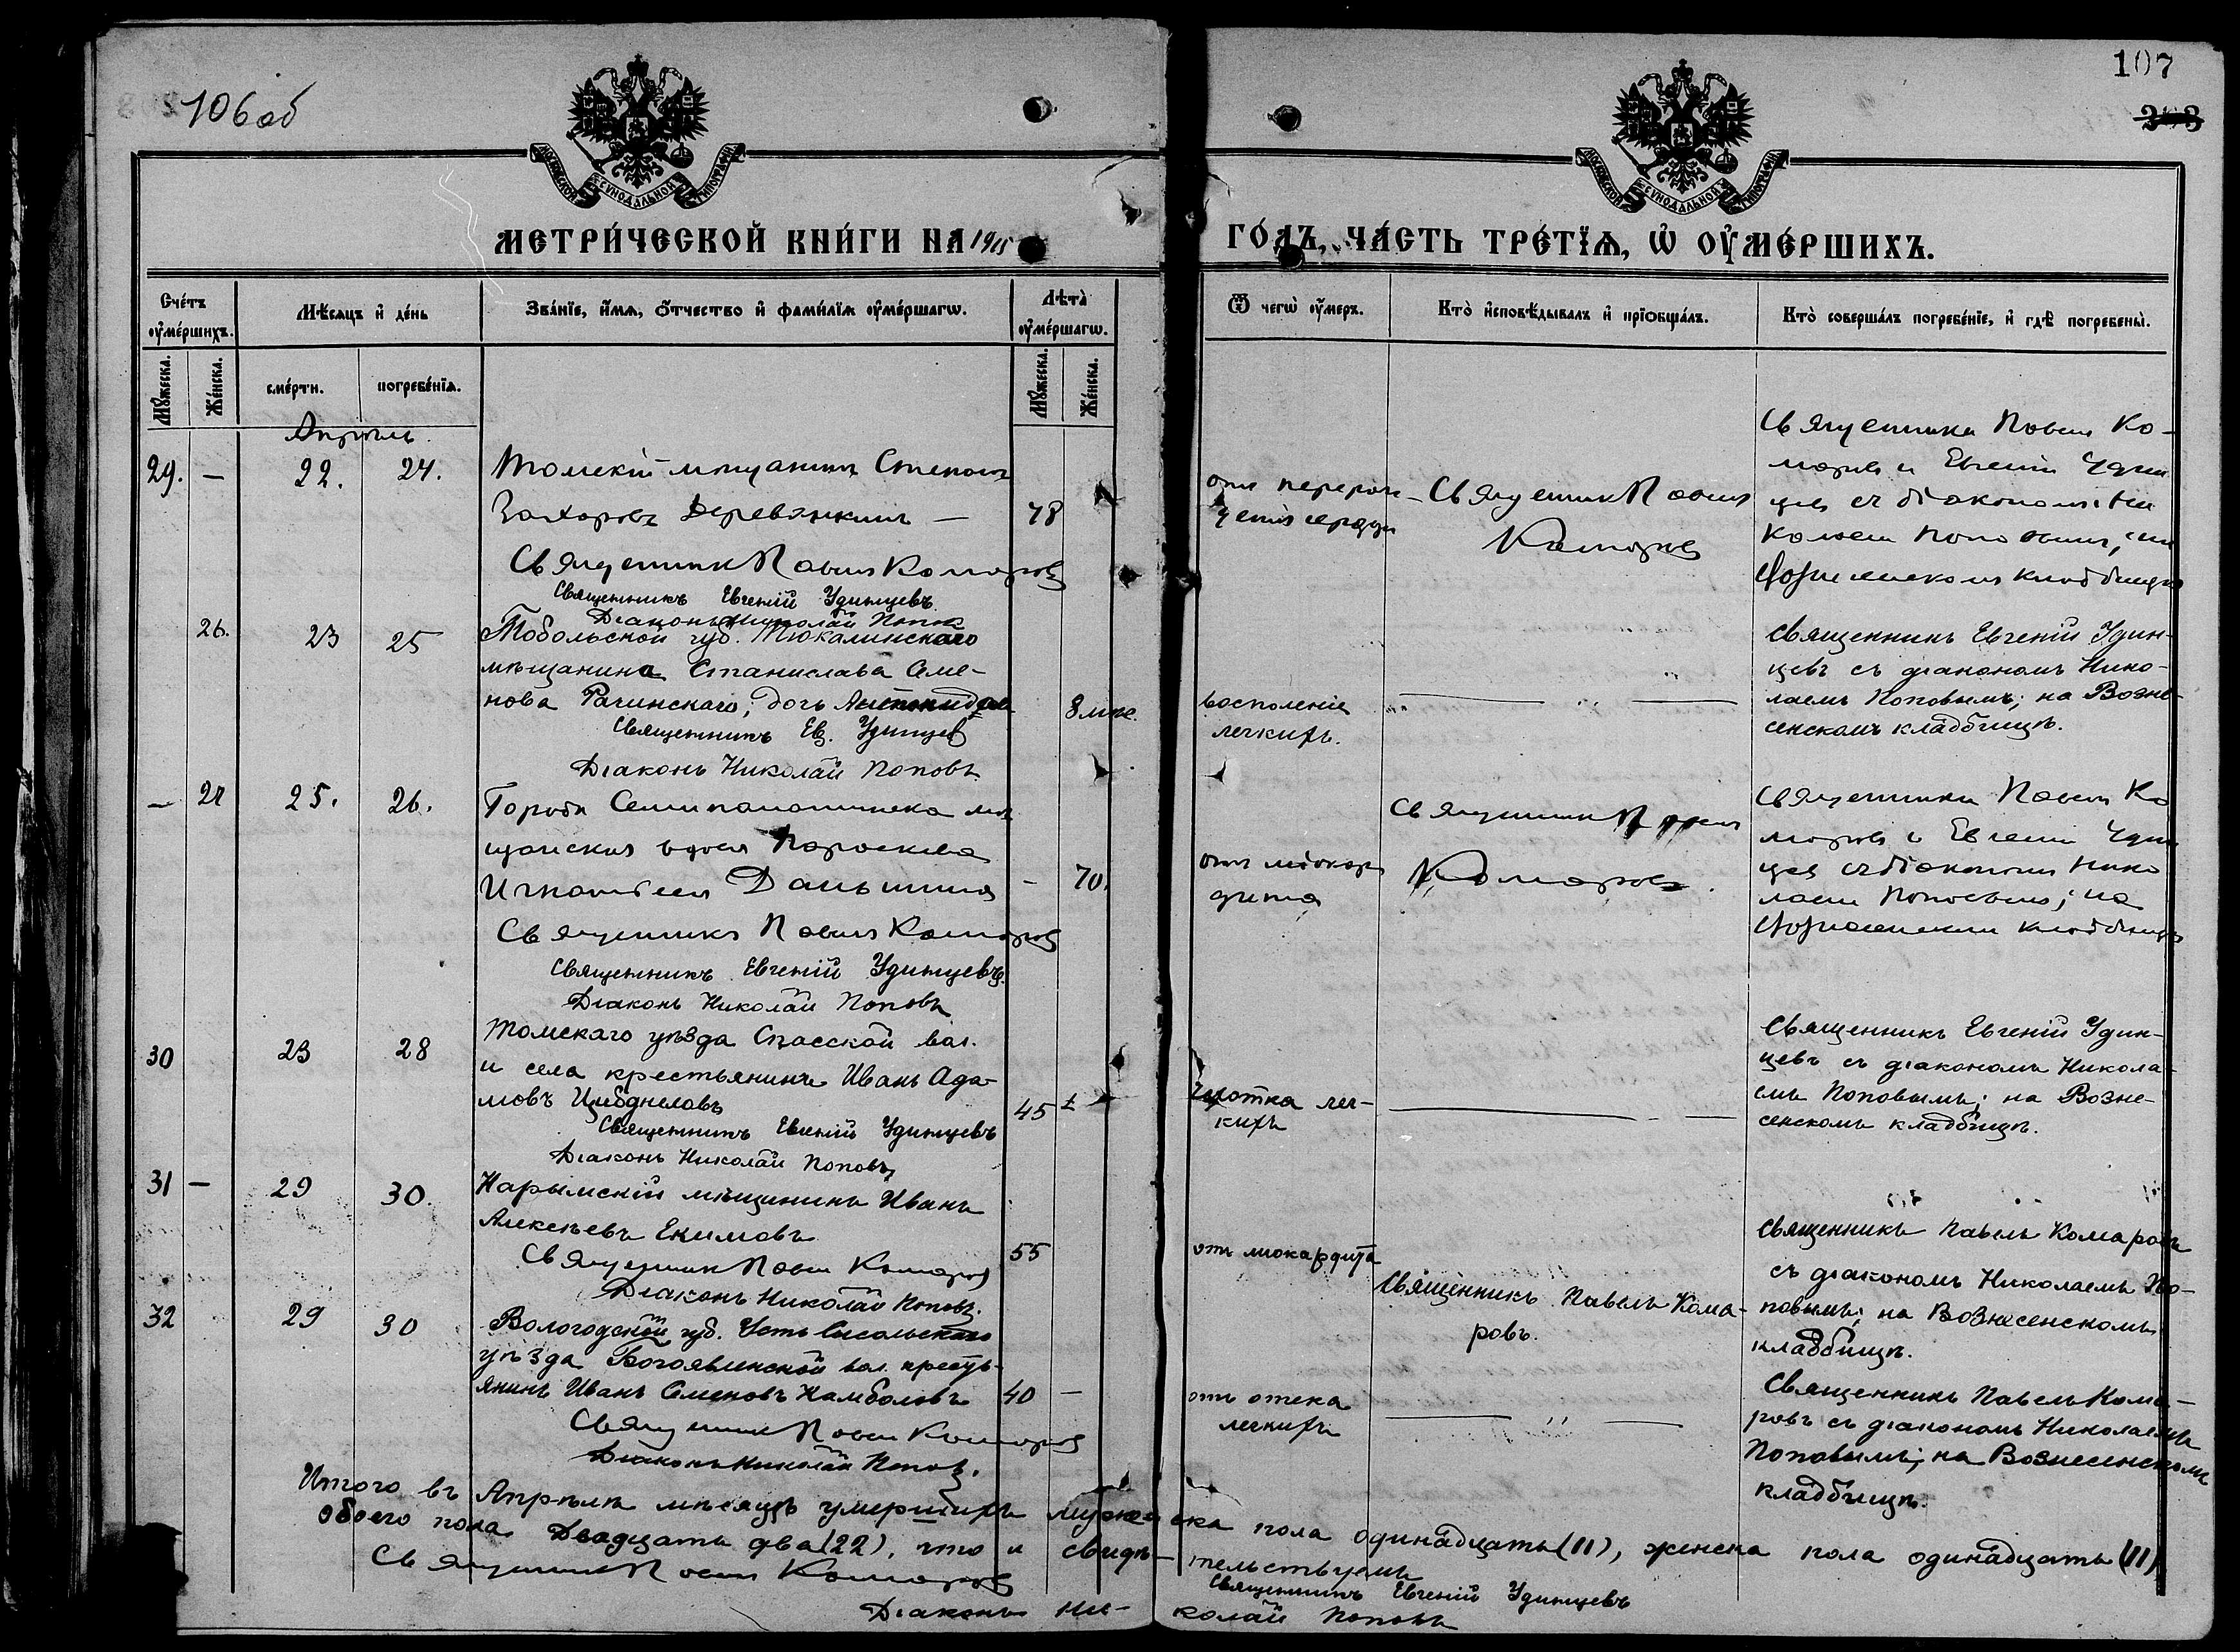 106 об
107
МОСКОВСКОЙ СѴНОДАЛЬНОЙ ТИПОГРАФІИ
МОСКОВСКОЙ СѴНОДАЛЬНОЙ ТИПОГРАФІИ
МЕТРИ́ЧЕСКОЙ КНИ́ГИ НА 1915
ГО́ДЪ, ЧА́СТЬ ТРЕ́ТЇѦ, Ѡ҆ ОУ҆МЕ́РШИХЪ.
Сче́тъ оу҆ме́ршихъ.
Мꙋ́жеска.
Же́нска.
Мѣ́сяцъ и҆ де́нь
сме́рти.
погребе́нїѧ.
Зва́нїе, и҆́мѧ, о҆́тчество и҆ фами́лїѧ оу҆ме́ршагѡ.
Лѣ́та оу҆ме́ршагѡ.
Мꙋ́жеска.
Же́нска.
Ѿ чегѡ̀ оу҆́меръ.
Кто̀ и҆сповѣ́дывалъ и҆ прїѡбща́лъ.
Кто̀ соверша́лъ погребе́нїе, и҆ гдѣ̀ погребены̀.
Апрѣль.
29. — 22. 24.
Томскій мѣщанинъ Степанъ
Захаровъ Деревянкинъ — 78
Священникъ Павелъ Комаровъ
Священникъ Евгеній Удинцевъ
Діаконъ Николай Поповъ
отъ перерож-
денія сердца
Священникъ Павелъ
Комаровъ
Священники Павелъ Ко-
маровъ и Евгеній Удин
цев съ діакономъ Ни
колаемъ Поповымъ, на
Вознесенскомъ кладбищѣ
26. 23 25
Тобольской губ. Тюкалинскаго
мѣщанина Станислава Семе-
нова Рачинскаго, дочь
8 мѣс.
Священникъ Ев. Удинцев
Діаконъ Николай Поповъ
воспаленіе
легкихъ.
— " —
Священникъ Евгеній Удин-
цевъ съ діакономъ Нико-
лаемъ Поповымъ; на Возне-
сенскомъ кладбищѣ.
— 27 25. 26.
Города Семипалатинска мѣ
щанская вдова Параскева
Игнатьева Даньшина — 70.
Священникъ Павелъ Комаровъ
Священникъ Евгеній Удинцевъ
Діаконъ Николай Поповъ
отъ міокар
дита
Священникъ Павелъ
Комаровъ.
Священники Павелъ Ко
маровъ и Евгеній Удин
цев съ діакономъ Нико
лаемъ Поповымъ; на
Вознесенскомъ кладбищѣ
30 23 28
Томскаго уѣзда Спасской вол.
и села крестьянинъ Иванъ Ада-
мовъ
45
Священникъ Евгеній Удинцевъ
Діаконъ Николай Поповъ
чахотка лег-
кихъ
— —
Священникъ Евгеній Удин-
цевъ съ діакономъ Никола-
емъ Поповымъ; на Возне-
сенскомъ кладбищѣ.
31 — 29 30.
Нарымскій мѣщанинъ Иванъ
Алексѣевъ Екимовъ
55
Священникъ Павелъ Комаровъ
Діаконъ Николай Поповъ.
отъ міокардита
Священникъ Павелъ Кома-
ровъ.
Священникъ Павелъ Комаровъ
съ діакономъ Николаемъ По-
повымъ; на Вознесенскомъ
кладбищѣ.
32 29 30
Вологодской губ. Усть Сысольскаго
уѣзда Богоявленской вол. кресть-
янинъ Иванъ Семеновъ Намболовъ 40 —
Священникъ Павелъ Комаровъ
Діаконъ Николай Поповъ.
отъ отека
легкихъ
— " —
Священникъ Павелъ Кома-
ровъ съ діакономъ Николаемъ
Поповымъ; на Вознесенскомъ
кладбищѣ.
Итого въ Апрѣлѣ мѣсяцѣ умершихъ мужеска пола одинадцать (11), женска пола одинадцать (11)
обоего пола двадцать два (22), что и свидѣ-тельствуемъ
Священникъ Павелъ Комаровъ
Священникъ Евгеній Удинцевъ
Діаконъ Ни-колай Поповъ